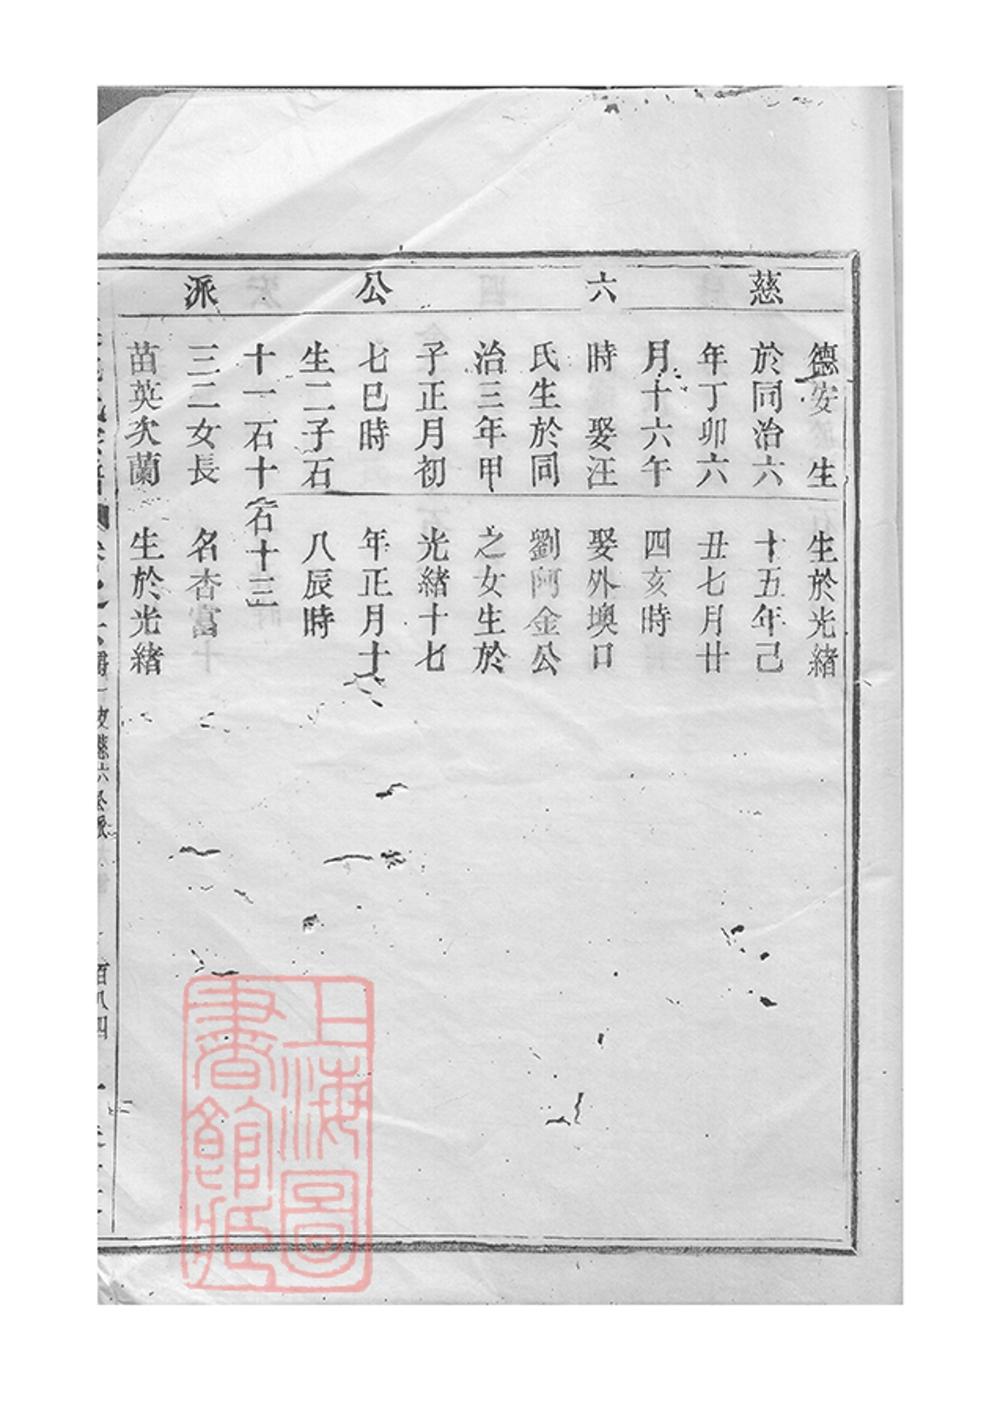 慈六公派
德安 生
於同治六
年丁卯六
月十六午
時 娶汪
氏生於同
治三年甲
子正月初
七巳時
生二子石
十一石十
三二女長
苗英次蘭
生於光緒
十五年己
丑七月廿
四亥時
娶外墺口
劉阿金公
之女生於
光緒十七
年正月十
八辰時
石十三
名杏富
生於光緒
慈六公派
百八四
上海圖書館藏